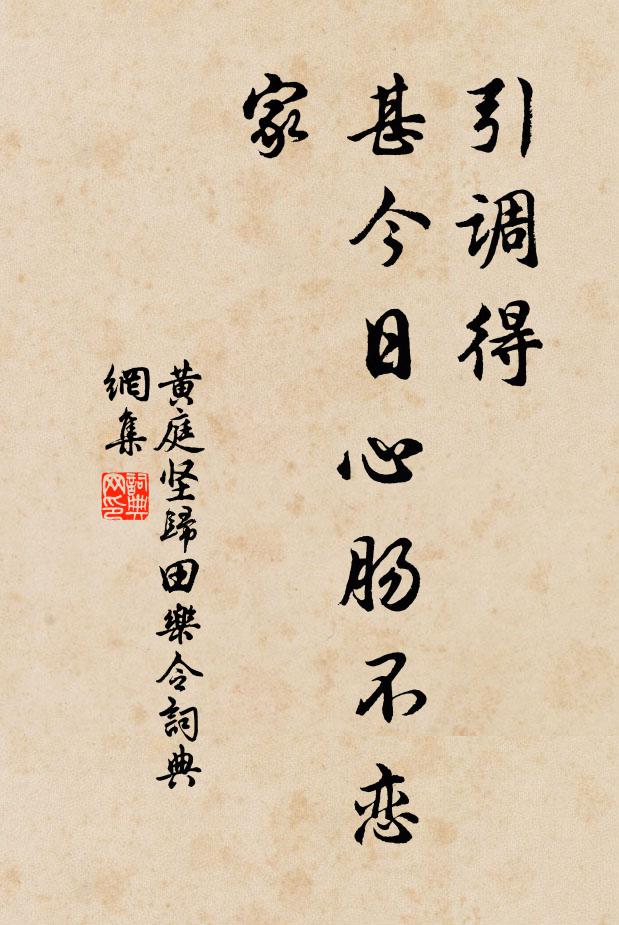 引调得
甚今日心肠不恋
家
黄庭坚歸田樂令詞典
網集
詞典
网印